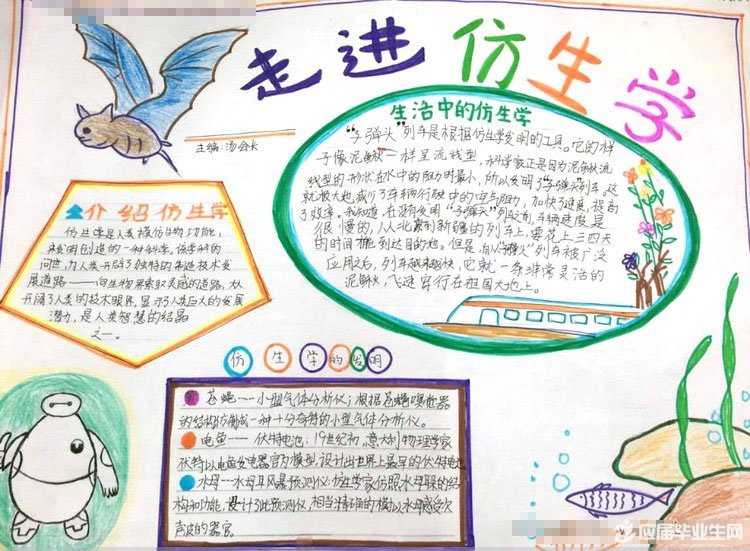 走进仿生学
主编:汤会长
生活中的仿生学
“子弹头”列车是根据仿生学发明的工具。它的样
子像泥鳅一样呈流线型,科学家正是因为泥鳅流
线型的形状在水中的阻力时最小,所以发明了“子弹头”列车。这
就极大地减少了车辆行驶中的空气阻力,加快了速度,提高
了效率。我知道,在没有发明“子弹头”列车之前,车辆速度是
很慢的,从北京到新疆的列车上,要花上三四天
的时间才能到达目的地。但是,自从“子弹头”列车被广泛
应用之后,列车越来越快,它就像一条非常灵活的
泥鳅,飞速穿行在祖国大地上。
介绍仿生学
仿生学是人类模仿生物功能,
来发明创造的一种科学。该学科的
问世,为人类开辟了独特的制造技术发
展道路——向生物界索取灵感的道路,大大
开阔了人类的技术眼界,显示了人类巨大的发展
潜力,是人类智慧的结晶
之一。
仿生学的发明
苍蝇——小型气体分析仪;根据苍蝇嗅觉器
的结构仿制成一种十分奇特的小型气体分析仪。
电鱼——伏特电池:19世纪初,意大利物理学家
伏特以电鱼发电器官为模型,设计出世界上最早的伏特电池
水母——水母耳风暴预测仪,仿生学家仿照水母耳的结
构和功能,设计了此预测仪,相当精确的模拟水母感受次
声波的器官。
应届毕业生网